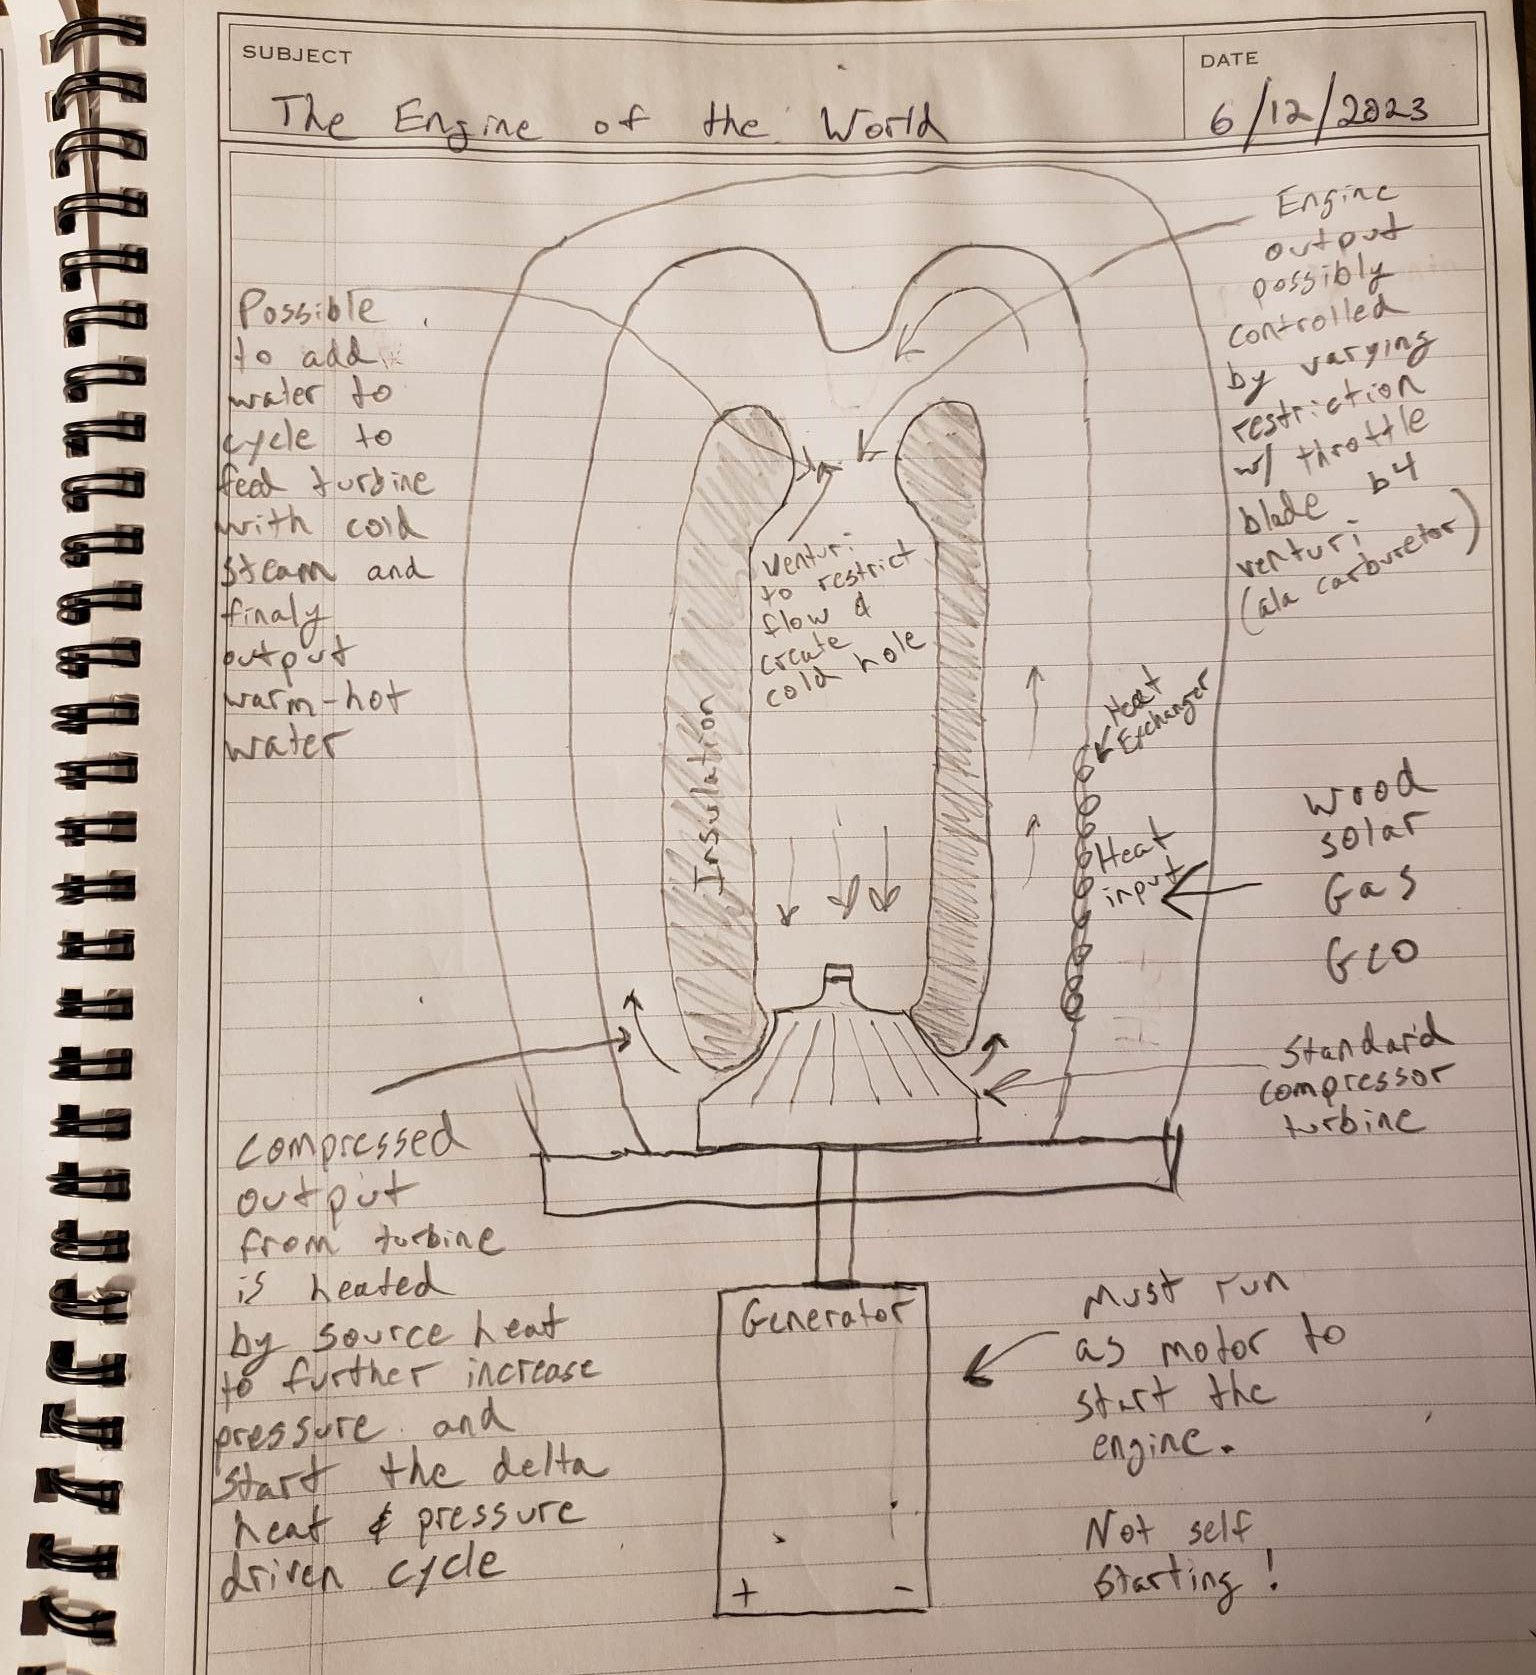 SUBJECT
The Engine of the World
DATE
6/12/2023
Possible
to add
water to
cycle to
feed turbine
with cold
steam and
finaly
output
warm-hot
water
Engine
output
possibly
controlled
by varying
restriction
w/ throttle
blade b4
venturi
(ala carburetor)
Venturi
to restrict
flow &
create
cold hole
Insulation
Heat
Exchanger
Heat
input
Wood
Solar
Gas
Geo
Standard
compressor
turbine
compressed
output
from turbine
is heated
by source heat
to further increase
pressure and
start the delta
heat & pressure
driven cycle
Generator
+ -
Must run
as motor to
start the
engine.
Not self
starting!